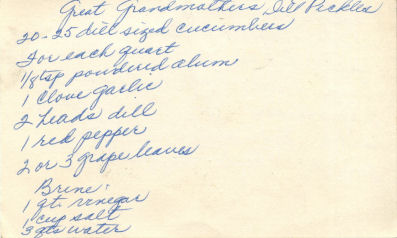 Great Grandmothers Dill Pickles
20-25 dill sized cucumbers
For each quart
1/8 tsp powdered alum
1 clove garlic
2 heads dill
1 red pepper
2 or 3 grape leaves
Brine:
1 qt. vinegar
1 cup salt
3 qts water